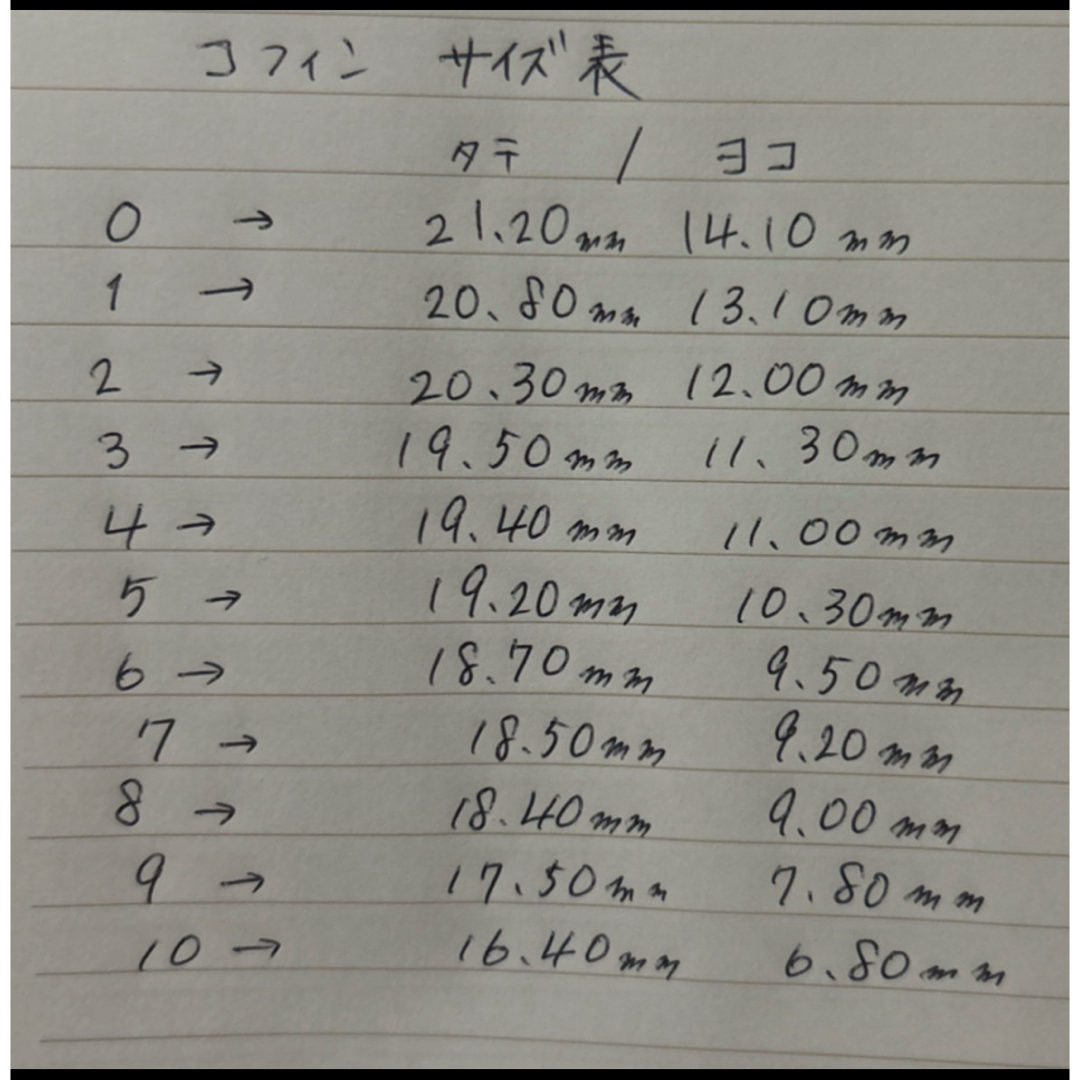 コフィン サイズ表
タテ / ヨコ
0 → 21.20mm 14.10mm
1 → 20.80mm 13.10mm
2 → 20.30mm 12.00mm
3 → 19.50mm 11.30mm
4 → 19.40mm 11.00mm
5 → 19.20mm 10.30mm
6 → 18.70mm 9.50mm
7 → 18.50mm 9.20mm
8 → 18.40mm 9.00mm
9 → 17.50mm 7.80mm
10 → 16.40mm 6.80mm